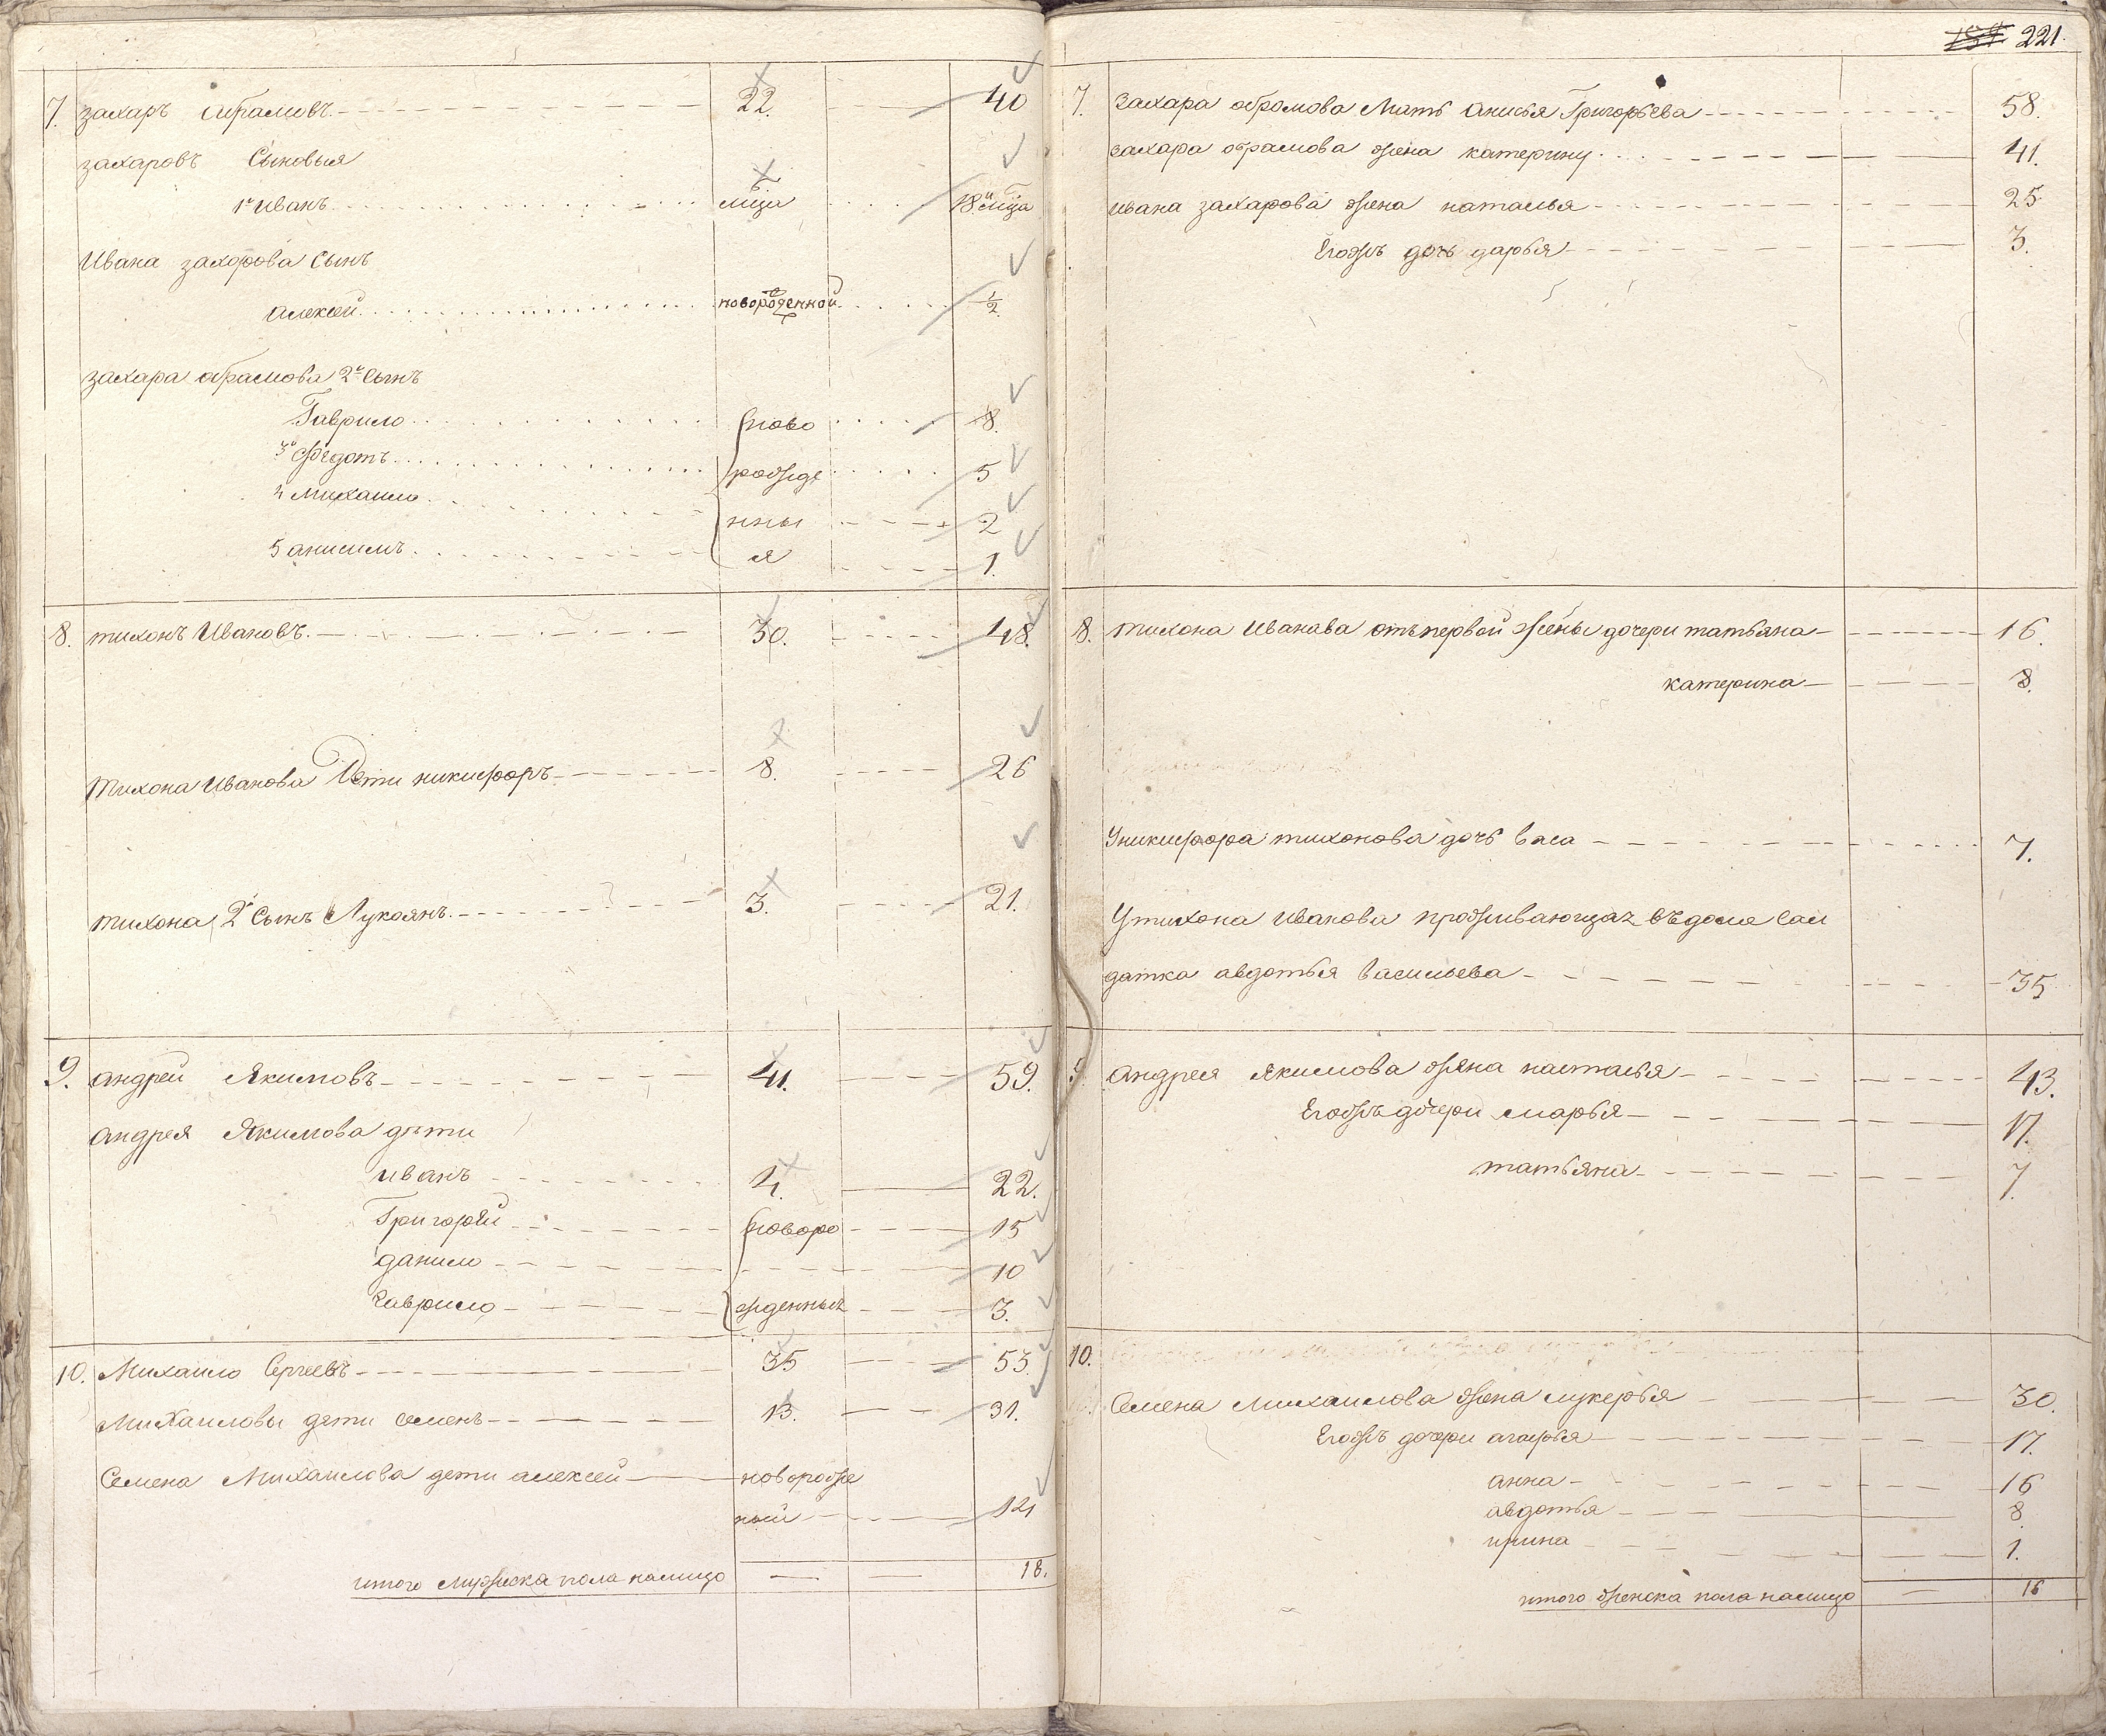 221.
7. захаръ абрамовъ. 22. 40
захаровъ Сыновья
1й Иванъ 6 мца 18 и 6 мца
Ивана захарова сынъ
алексей новорожденной 1/2
захара абрамова 2й сынъ
Гаврило ново 8.
3й Федотъ рожде 5
4 михаило нны 2
5 анисимъ я 1.
8. тихонъ Ивановъ. 30. 48.
тихона Иванова Дети никифоръ 8. 26
тихона 2й сынъ Лукоянъ 3. 21.
9. андрей Якимовъ 41. 59.
андрея Якимова дети
иванъ 4. 22.
Григорей новоро 15
данило 10
гаврило жденных 3.
10. Михаило Сергеевъ 35 53
Михаиловы дети семенъ 13. 31.
Семена Михаилова дети алексей новорожде
ной 14
итого мужеска пола налицо 18.
7. Захара абрамова Мать анисья Григорьева 58.
захара абрамова жена катерина 41.
ивана захарова жена наталья 25
Егожъ дочь дарья 3.
8. тихона Иванава отъ первой жены дочери татьяна 16.
катерина 8.
У никифора тихонова дочь васа 7.
У тихона Иванова проживающая въ доме сал
датка авдотья васильева 35
9. андрея якимова жена настасья 43.
Егожъ дочери марья 17.
татьяна 7
10.
Семена Михаилова жена лукерья 30.
Егожъ дочери агафья 17.
анна 16
авдотья 8
ирина 1.
итого женска пола налицо 16